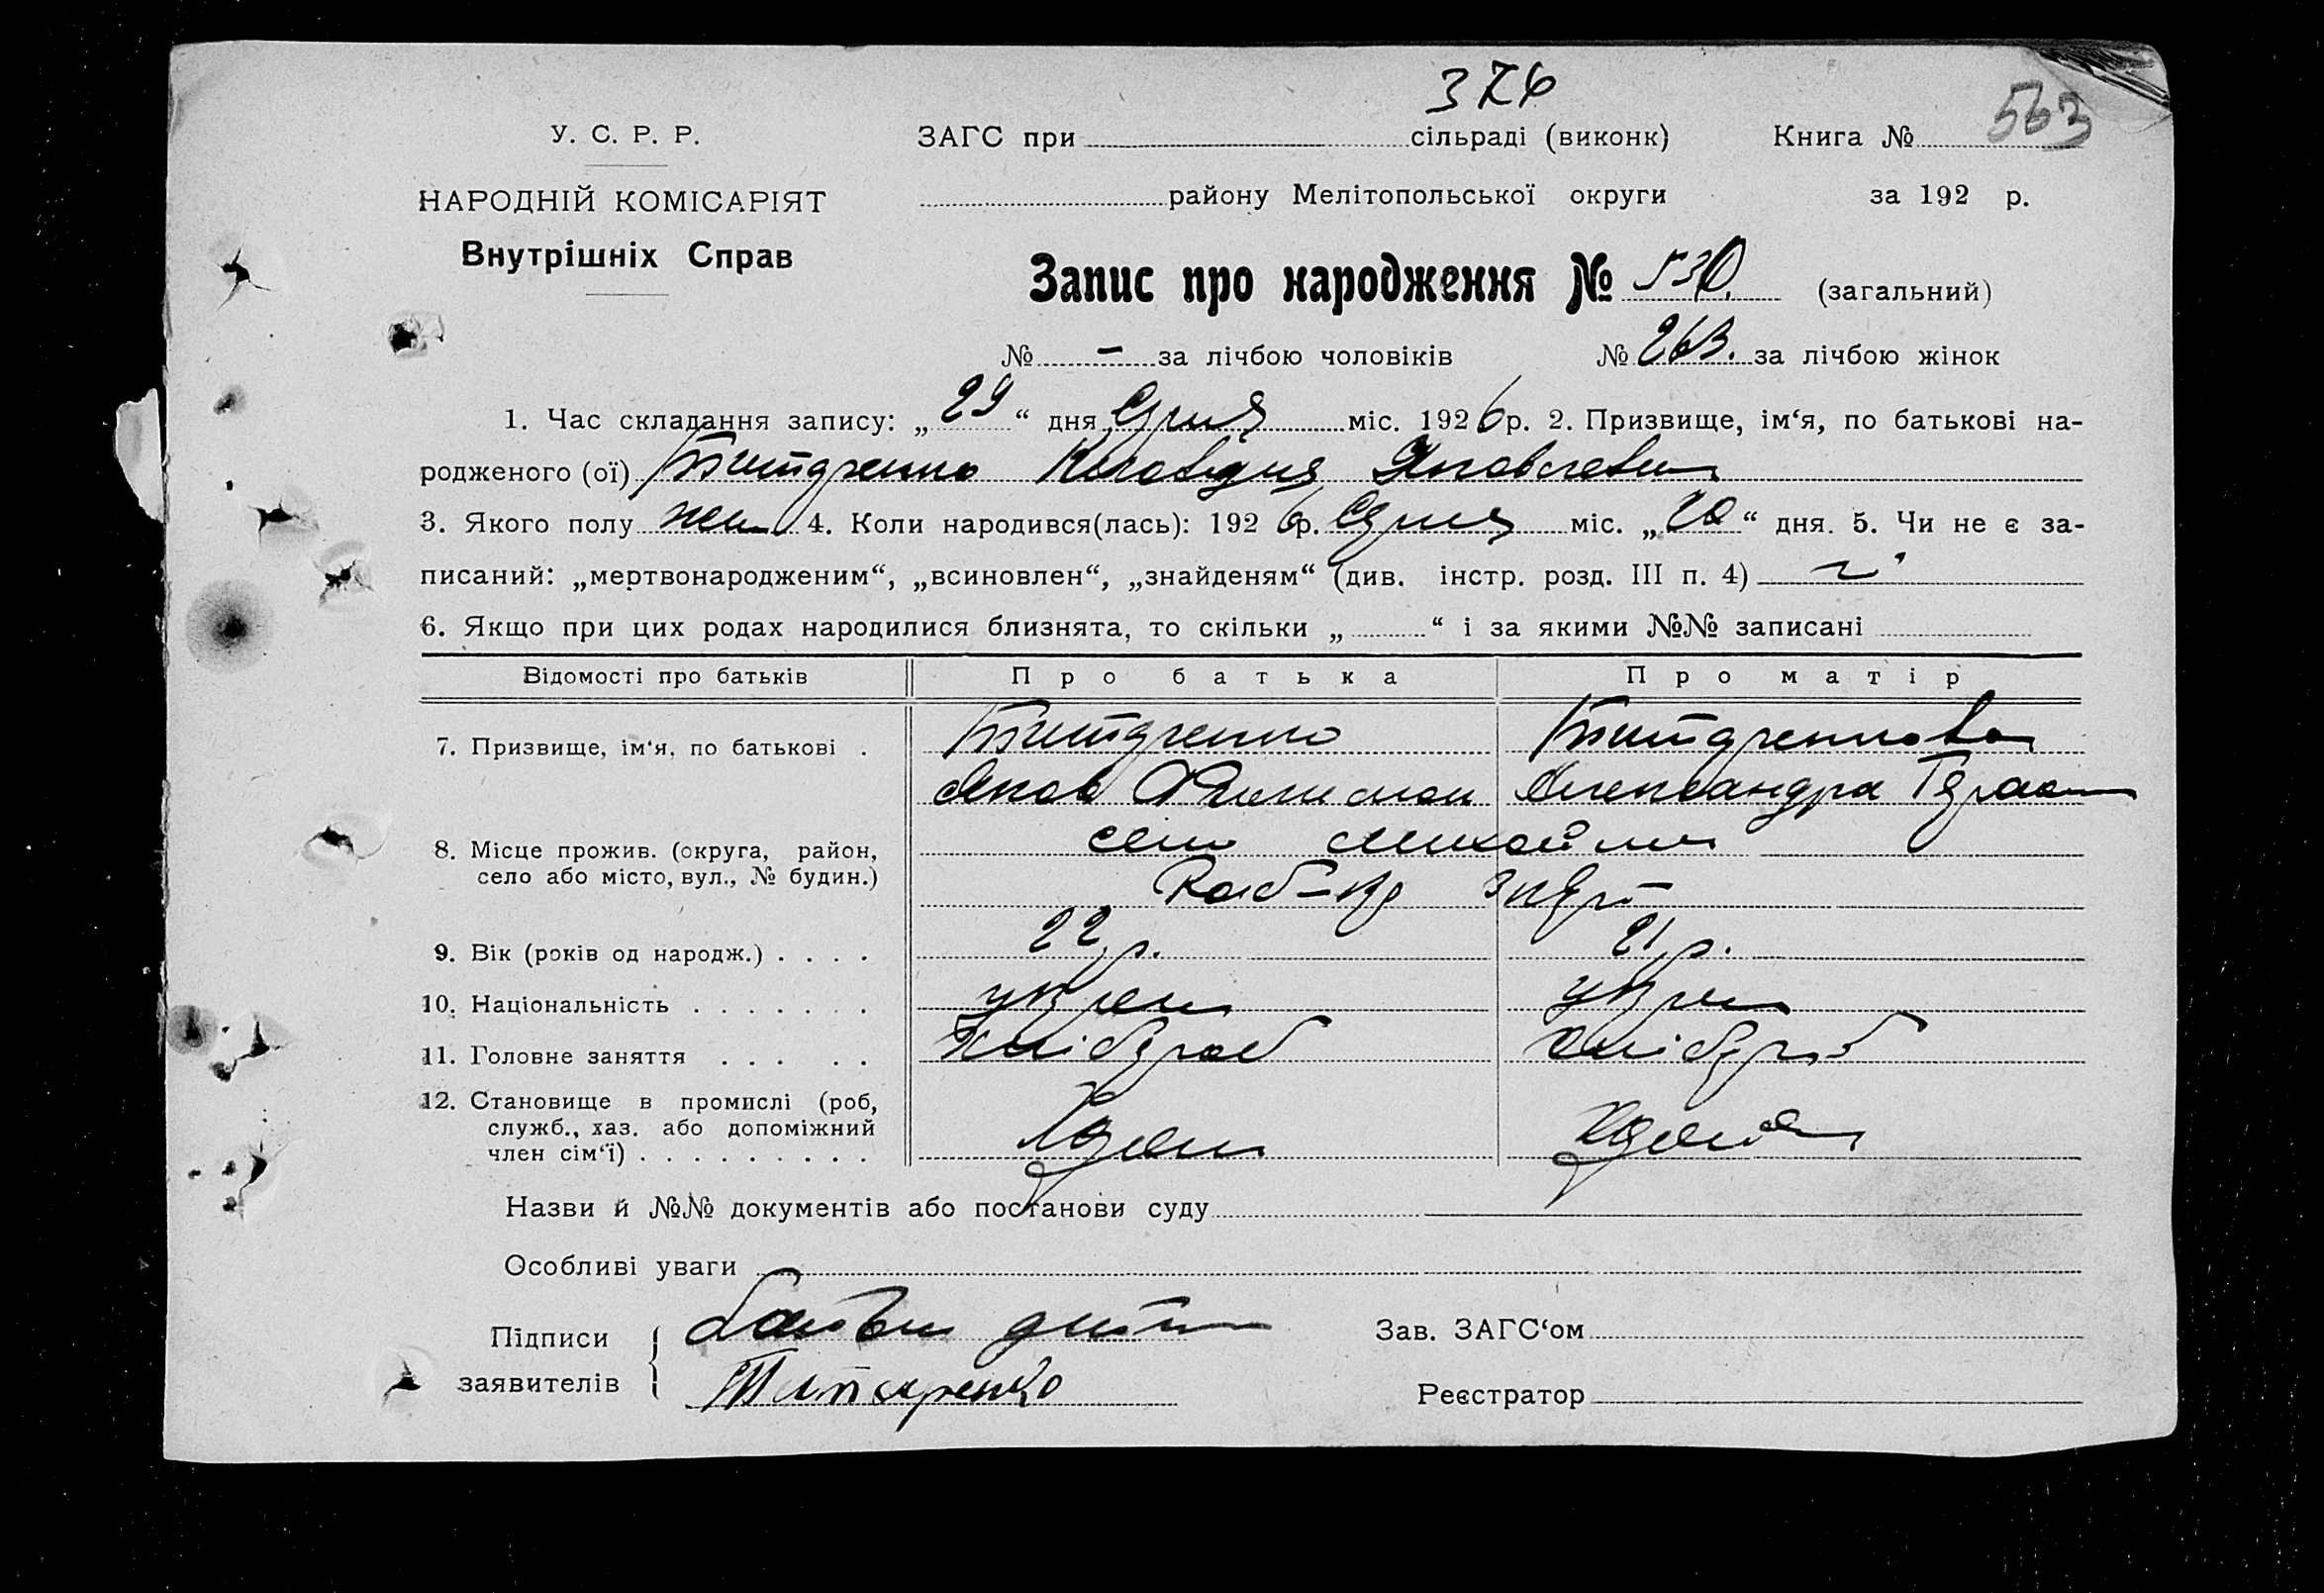 376
563
У. С. Р. Р.
ЗАГС при сільраді (виконк)
Книга №
НАРОДНІЙ КОМІСАРІЯТ
району Мелітопольської округи
за 192 р.
Внутрішніх Справ
Запис про народження № 530. (загальний)
№ – за лічбою чоловіків № 263. за лічбою жінок
1. Час складання запису: „ 29 “ дня міс. 1926 р. 2. Призвище, ім‘я, по батькові на-
родженого (ої) Клавдия Яковлевн
3. Якого полу жен 4. Коли народився(лась): 1926 р. міс. „ 20 “ дня. 5. Чи не є за-
писаний: „мертвонародженим“, „всиновлен“, „знайденям“ (див. інстр. розд. III п. 4)
6. Якщо при цих родах народилися близнята, то скільки „ “ і за якими №№ записані
Відомості про батьків
Про батька
Про матір
7. Призвище, ім‘я, по батькові .
Яков
Александра Герас
8. Місце прожив. (округа, район,
село або місто, вул., № будин.)
село
9. Вік (років од народж.) . . . .
22 р.
21 р.
10. Національність . . . . . . .
укр
укр
11. Головне заняття . . . . .
хлібороб
хлібороб
12. Становище в промислі (роб,
служб., хаз. або допоміжний
член сім‘ї) . . . . . . . . .
Назви й №№ документів або постанови суду
Особливі уваги
Підписи
заявителів
Титаренко
Зав. ЗАГС‘ом
Реєстратор